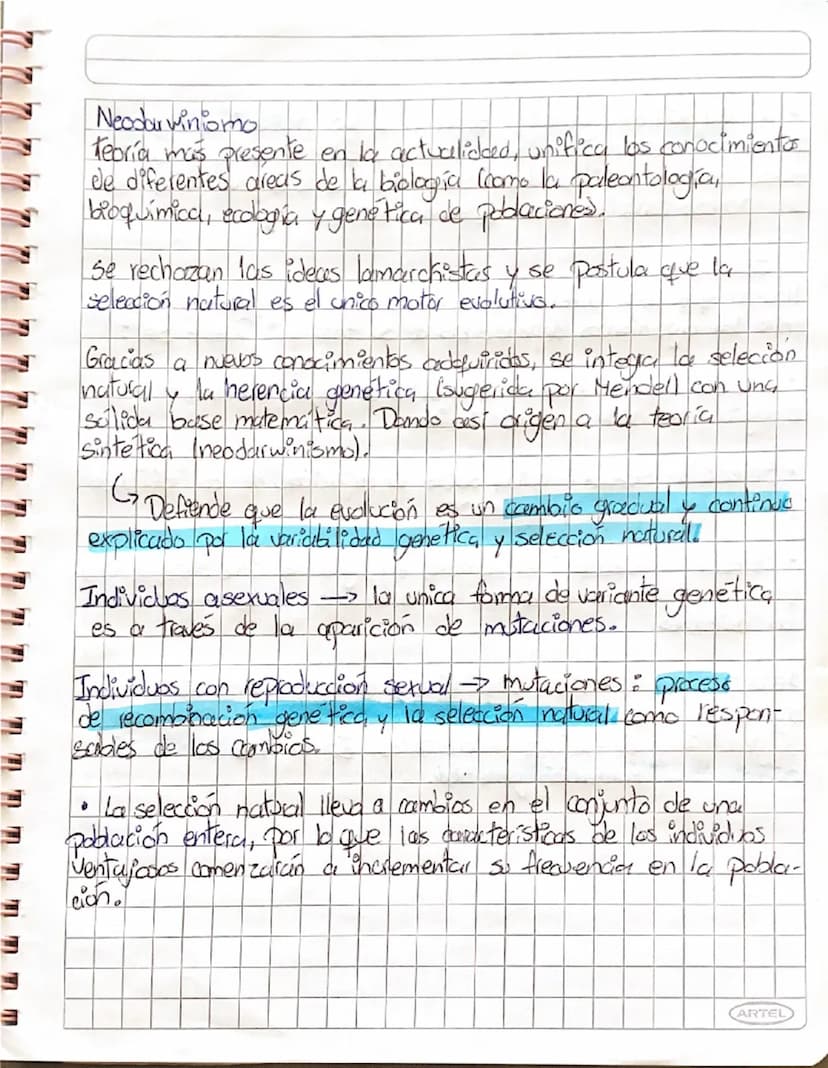 Neodarwinismo
teoría más presente en la actualidad, unifica los conocimientos
de diferentes areas de la biología (como la paleontología,
bioquímica, ecología y genética de poblaciones).
Se rechazan las ideas lamarckistas y se postula que la
selección natural es el unico motor evolutivo.
Gracias a nuevos conocimientos adquiridos, se integra la selección
natural y la herencia genética (sugerida por Mendel) con una
sólida base matemática. Dando así origen a la teoría
sintética (neodarwinismo).
↳ Defiende que la evolución es un cambio gradual y continuo
explicado por la variabilidad genética y selección natural.
Individuos asexuales → la unica forma de variante genética
es a través de la aparición de mutaciones.
Individuos con reproducción sexual → mutaciones: proceso
de recombinación genética y la selección natural como respon-
sables de los cambios.
• La selección natural lleva a cambios en el conjunto de una
población entera, por lo que las características de los individuos
ventajados comenzarán a incrementar su frecuencia en la pobla-
ción.
ARTEL